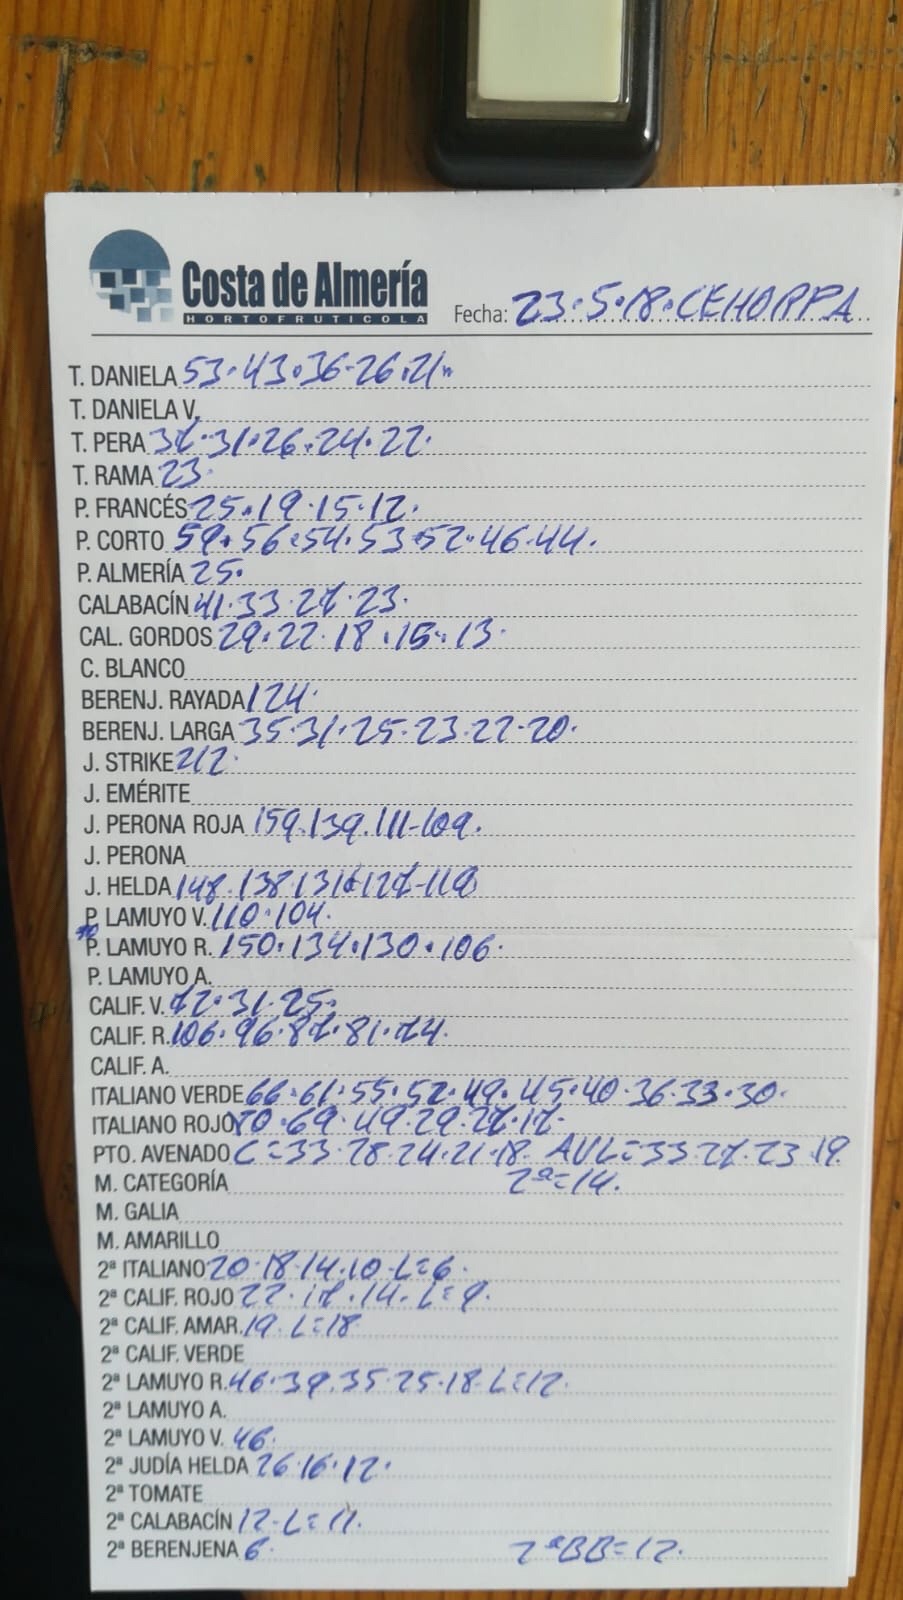 Costa de Almería
HORTOFRUTICOLA
Fecha: 23.5.18.CEHORPA
T. DANIELA 53.43.36-26.21"
T. DANIELA V.
T. PERA 37.31.26.24.22.
T. RAMA 23.
P. FRANCÉS 25.19.15.12.
P. CORTO 59.56.54.53.52.46.44.
P. ALMERÍA 25.
CALABACÍN 41.33.27.23.
CAL. GORDOS 29.22.18.15.13.
C. BLANCO
BERENJ. RAYADA 124.
BERENJ. LARGA 35.31.25.23.22.20.
J. STRIKE 212.
J. EMÉRITE
J. PERONA ROJA 159.139.111-109.
J. PERONA
J. HELDA 148.138.131.127-118
P. LAMUYO V. 110.104.
P. LAMUYO R. 150.134.130.106.
P. LAMUYO A.
CALIF. V. 72.31.25.
CALIF. R. 106.96.87.81.74.
CALIF. A.
ITALIANO VERDE 66.61.55.52.49.45.40.36.33.30.
ITALIANO ROJO 70.69.49.29.27.17.
PTO. AVENADO C=33.28.24.21.18. AVL=33.27.23.19.
M. CATEGORÍA 2ª=14.
M. GALIA
M. AMARILLO
2ª ITALIANO 20.18.14.10.L=6.
2ª CALIF. ROJO 22.17.14.L=9.
2ª CALIF. AMAR. 19.L=18
2ª CALIF. VERDE
2ª LAMUYO R. 46.39.35.25.18.L=12.
2ª LAMUYO A.
2ª LAMUYO V. 46.
2ª JUDÍA HELDA 26.16.12.
2ª TOMATE
2ª CALABACÍN 12-L=11.
2ª BERENJENA 6. 2ªBB=12.